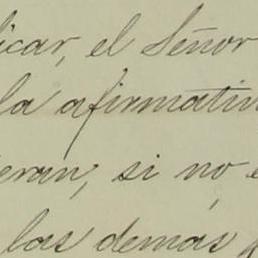 icar, el Señor
la afirmativ
eran, si no e
las demás